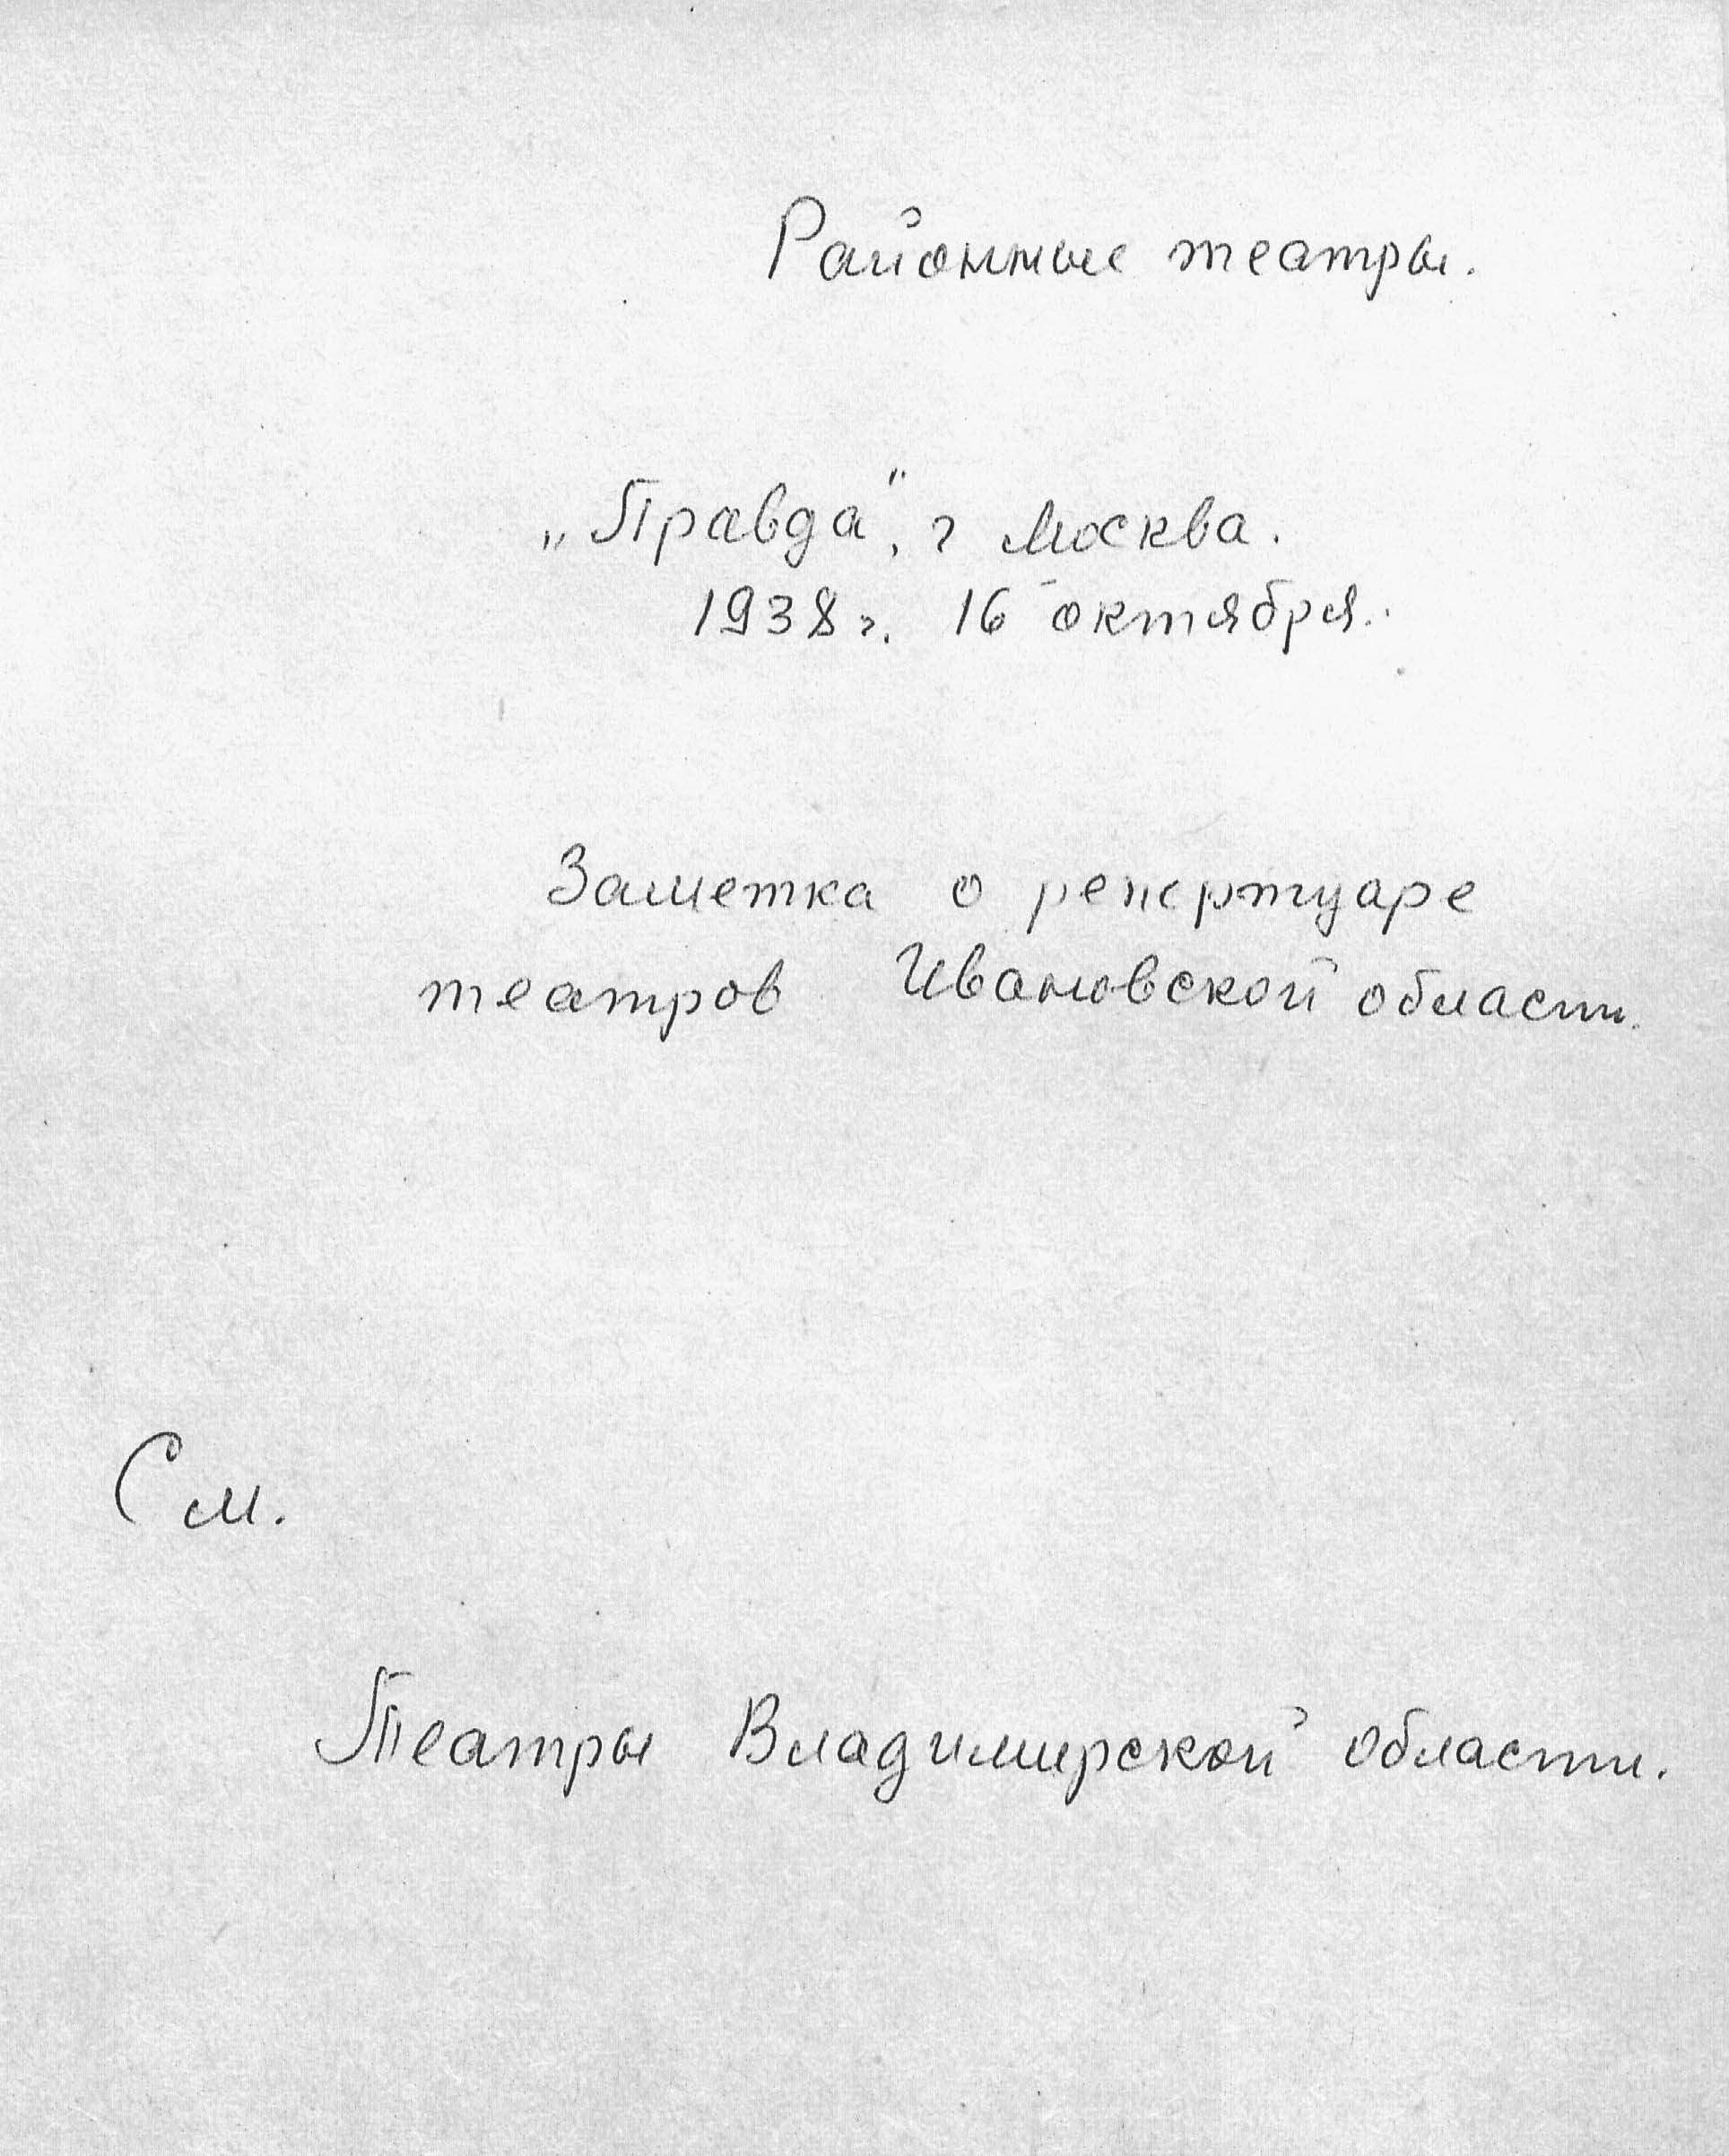 Районные театры.
„Правда", г Москва.
1938 г. 16 октября.
Заметка о репертуаре
театров Ивановской области.
См.
Театры Владимирской области.